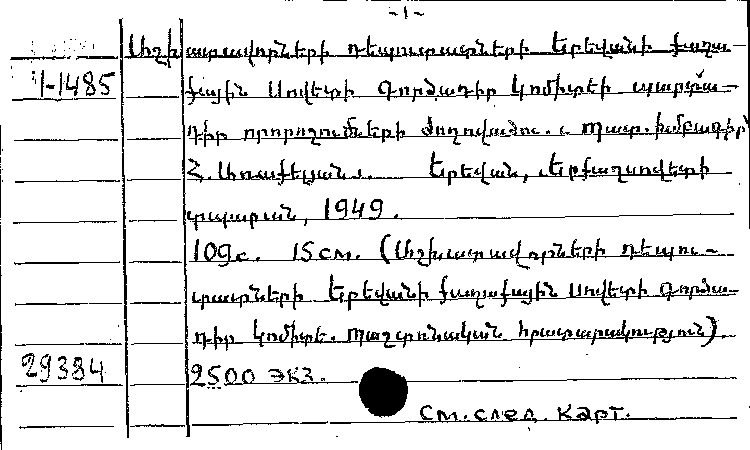 -1-
Աշխատավորների դեպուտատների Երեվանի քաղա-
11-1485
քային Սովետի Գործադիր Կոմիտեի պարտա-
դիր որոշումների ժողովածու. Պատ. խմբագիր՝
Հ. Առաքելյան. Երեվան, Երքաղսովետի
տպարան, 1949.
109с. 15см. (Աշխատավորների դեպու-
տատների Երեվանի քաղաքային Սովետի Գործա-
դիր Կոմիտե. Պաշտոնական հրատարակություն).
29384
2500 экз.
См. след. карт.